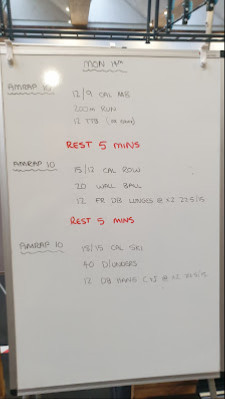 MON 14TH
AMRAP 10
12/9 CAL MB
200M RUN
12 TTB
REST 5 MINS
AMRAP 10
15/12 CAL ROW
20 WALL BALL
12 FR DB LUNGES @ x2 22.5/15
REST 5 MINS
AMRAP 10
18/15 CAL SKI
40 D/UNDERS
12 DB HANG @ x2 22.5/15